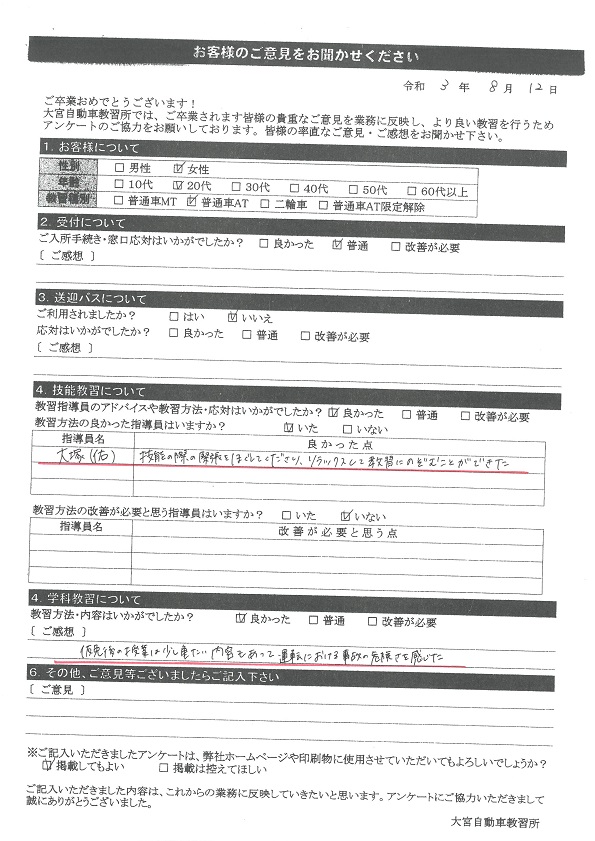 お客様のご意見をお聞かせください
令和 3 年 8 月 12 日
ご卒業おめでとうございます！
大宮自動車教習所では、ご卒業されます皆様の貴重なご意見を業務に反映し、より良い教習を行うため
アンケートのご協力をお願いしております。皆様の率直なご意見・ご感想をお聞かせ下さい。
1. お客様について
性別 □ 男性 ☑ 女性
年齢 □ 10代 ☑ 20代 □ 30代 □ 40代 □ 50代 □ 60代以上
教習種別 □ 普通車MT ☑ 普通車AT □ 二輪車 □ 普通車AT限定解除
2. 受付について
ご入所手続き・窓口応対はいかがでしたか？ □ 良かった ☑ 普通 □ 改善が必要
〔 ご感想 〕
3. 送迎バスについて
ご利用されましたか？ □ はい ☑ いいえ
応対はいかがでしたか？ □ 良かった □ 普通 □ 改善が必要
〔 ご感想 〕
4. 技能教習について
教習指導員のアドバイスや教習方法・応対はいかがでしたか？ ☑ 良かった □ 普通 □ 改善が必要
教習方法の良かった指導員はいますか？ ☑ いた □ いない
指導員名 良かった点
大塚(佑) 技能の際の緊張をほぐしてくださり、リラックスして教習にのぞむことができた
教習方法の改善が必要と思う指導員はいますか？ □ いた ☑ いない
指導員名 改善が必要と思う点
4. 学科教習について
教習方法・内容はいかがでしたか？ ☑ 良かった □ 普通 □ 改善が必要
〔 ご感想 〕
仮免後の授業は少し重たい内容もあって運転における事故の危険さを感じた
6. その他、ご意見等ございましたらご記入下さい
〔 ご意見 〕
※ご記入いただきましたアンケートは、弊社ホームページや印刷物に使用させていただいてもよろしいでしょうか？
☑ 掲載してもよい □ 掲載は控えてほしい
ご記入いただきました内容は、これからの業務に反映していきたいと思います。アンケートにご協力いただきまして
誠にありがとうございました。
大宮自動車教習所